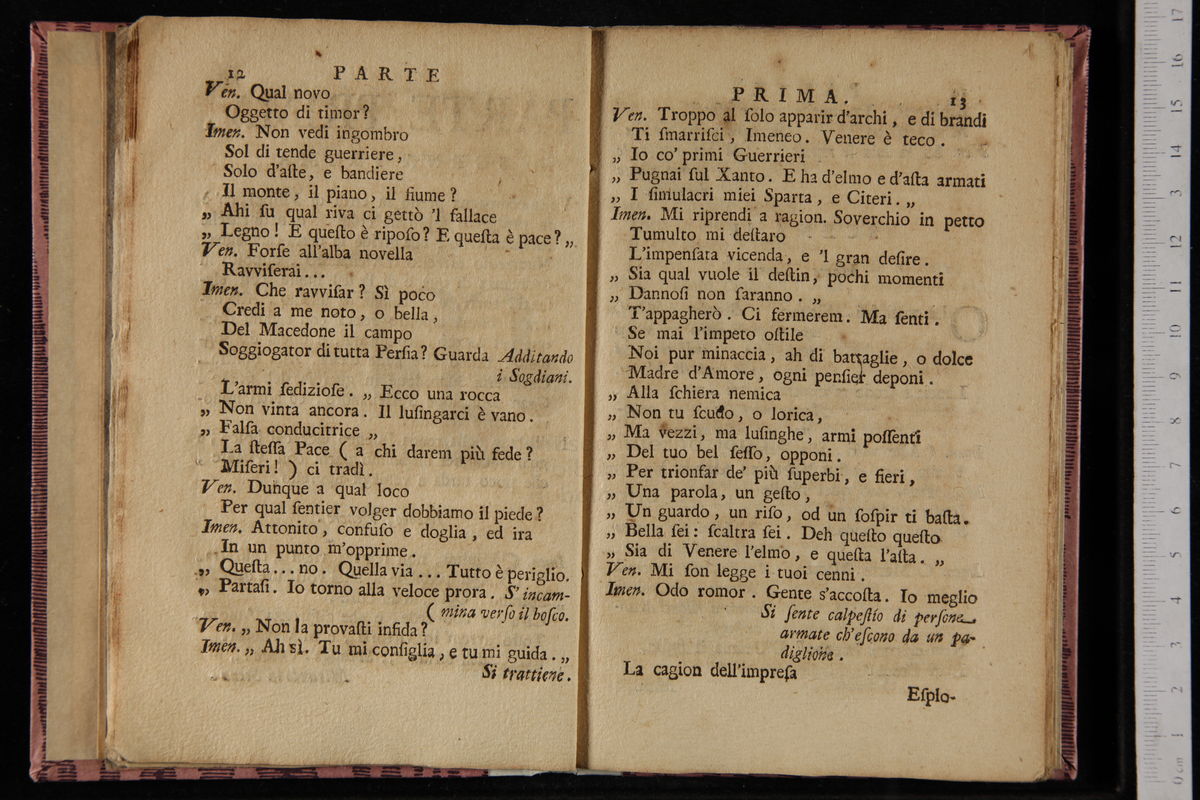 12 PARTE
Ven. Qual novo
Oggetto di timor?
Imen. Non vedi ingombro
Sol di tende guerriere,
Solo d'aſte, e bandiere
Il monte, il piano, il fiume?
„ Ahi ſu qual riva ci gettò 'l fallace
„ Legno! E queſto è ripoſo? E queſta è pace? „
Ven. Forſe all'alba novella
Ravviſerai...
Imen. Che ravviſar? Sì poco
Credi a me noto, o bella,
Del Macedone il campo
Soggiogator di tutta Perſia? Guarda Additando
i Sogdiani.
L'armi ſedizioſe. „ Ecco una rocca
„ Non vinta ancora. Il luſingarci è vano.
„ Falſa conducitrice „
La ſteſſa Pace ( a chi darem più fede?
Miſeri! ) ci tradì.
Ven. Dunque a qual loco
Per qual ſentier volger dobbiamo il piede?
Imen. Attonito, confuſo e doglia, ed ira
In un punto m'opprime.
„ Queſta... no. Quella via... Tutto è periglio.
„ Partaſi. Io torno alla veloce prora. S'incam-
( mina verſo il boſco.
Ven. „ Non la provaſti infida?
Imen. „ Ah sì. Tu mi conſiglia, e tu mi guida. „
Si trattiene.
PRIMA. 13
Ven. Troppo al ſolo apparir d'archi, e di brandi
Ti ſmarriſci, Imeneo. Venere è teco.
„ Io co' primi Guerrieri
„ Pugnai ſul Xanto. E ha d'elmo e d'aſta armati
„ I ſimulacri miei Sparta, e Citeri. „
Imen. Mi riprendi a ragion. Soverchio in petto
Tumulto mi deſtaro
L'impenſata vicenda, e 'l gran deſire.
„ Sia qual vuole il deſtin, pochi momenti
„ Dannoſi non ſaranno. „
T'appagherò. Ci fermerem. Ma ſenti.
Se mai l'impeto oſtile
Noi pur minaccia, ah di battaglie, o dolce
Madre d'Amore, ogni penſier deponi.
„ Alla ſchiera nemica
„ Non tu ſcudo, o lorica,
„ Ma vezzi, ma luſinghe, armi poſſenti
„ Del tuo bel ſeſſo, opponi.
„ Per trionfar de' più ſuperbi, e fieri,
„ Una parola, un geſto,
„ Un guardo, un riſo, od un ſoſpir ti baſta.
„ Bella ſei: ſcaltra ſei. Deh queſto queſto
„ Sia di Venere l'elmo, e queſta l'aſta. „
Ven. Mi ſon legge i tuoi cenni.
Imen. Odo romor. Gente s'accoſta. Io meglio
Si ſente calpeſtio di perſone
armate ch'eſcono da un pa-
diglione.
La cagion dell'impreſa
Eſplo-